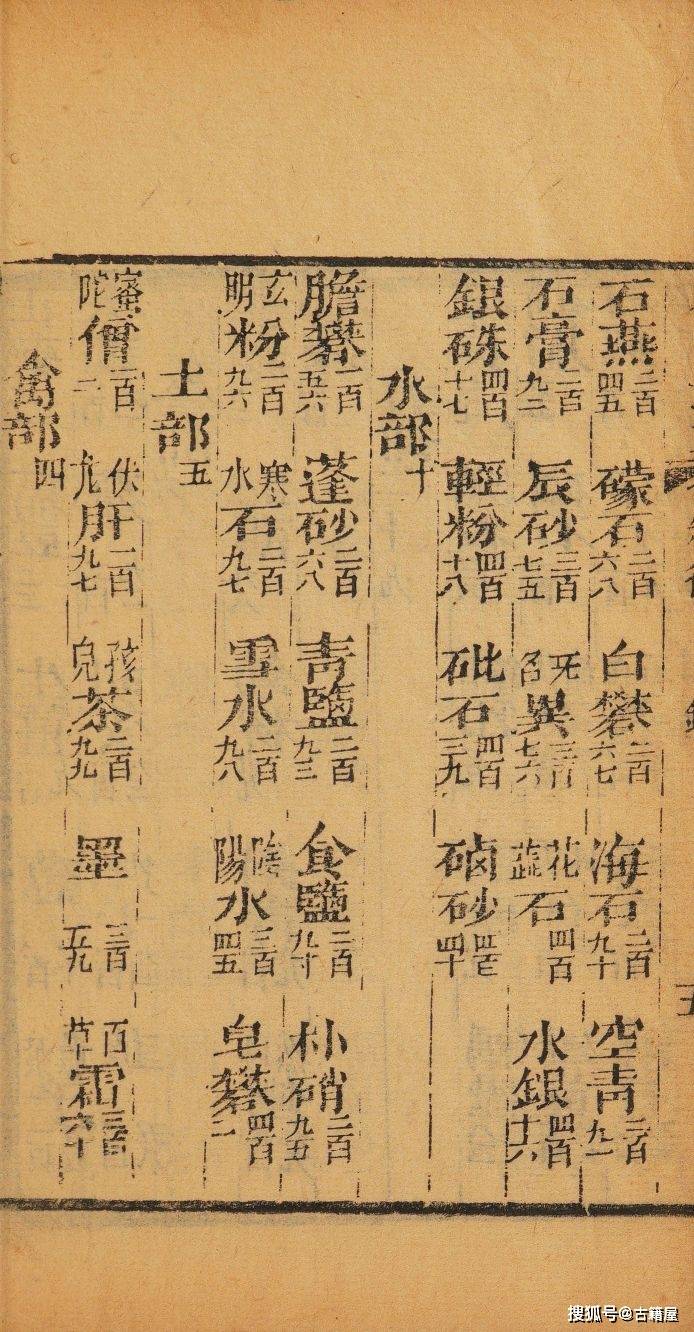 石燕二百四五 礞石二百六八 白礬二百六七 海石二百九十 空青二百九一
石膏二百九二 辰砂三百七五 无名異三百七六 花蕊石四百 水銀四百十六
銀硃四百十七 輕粉四百十八 砒石四百三九 硇砂四百四十
水部十
膽礬二百五六 蓬砂二百六八 青鹽二百九三 食鹽二百九十 朴硝二百九五
玄明粉二百九六 寒水石二百九七 雪水二百九八 陰陽水三百四五 皂礬四百二
土部五
蜜陀僧二百一 伏龙肝二百九七 孩兒茶二百九九 墨三百五九 百草霜三百六十
禽部四
搜狐号@古籍屋